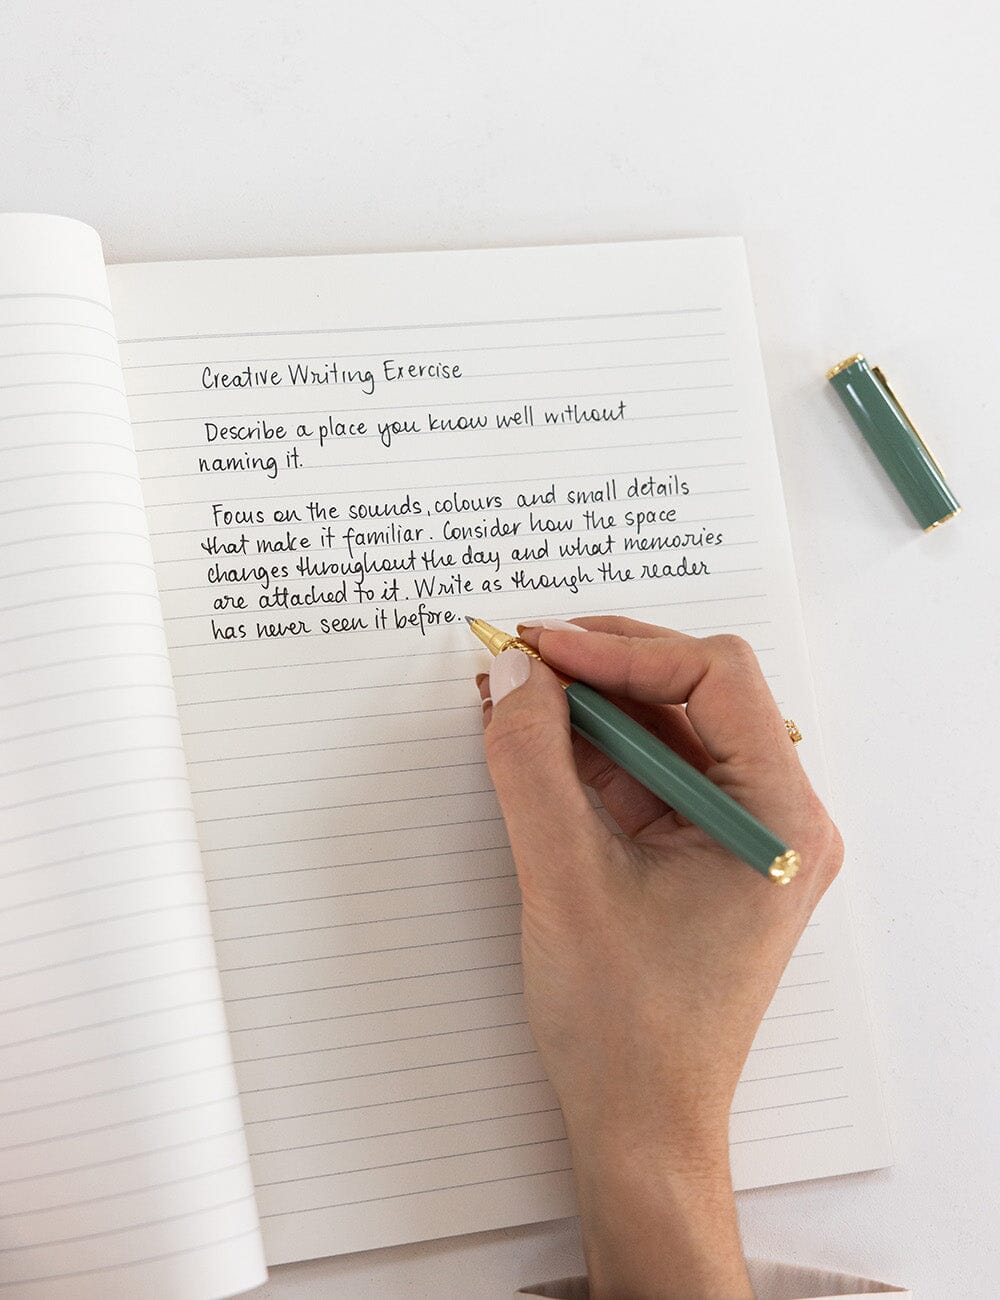 Creative Writing Exercise
Describe a place you know well without
naming it.
Focus on the sounds, colours and small details
that make it familiar. Consider how the space
changes throughout the day and what memories
are attached to it. Write as though the reader
has never seen it before.